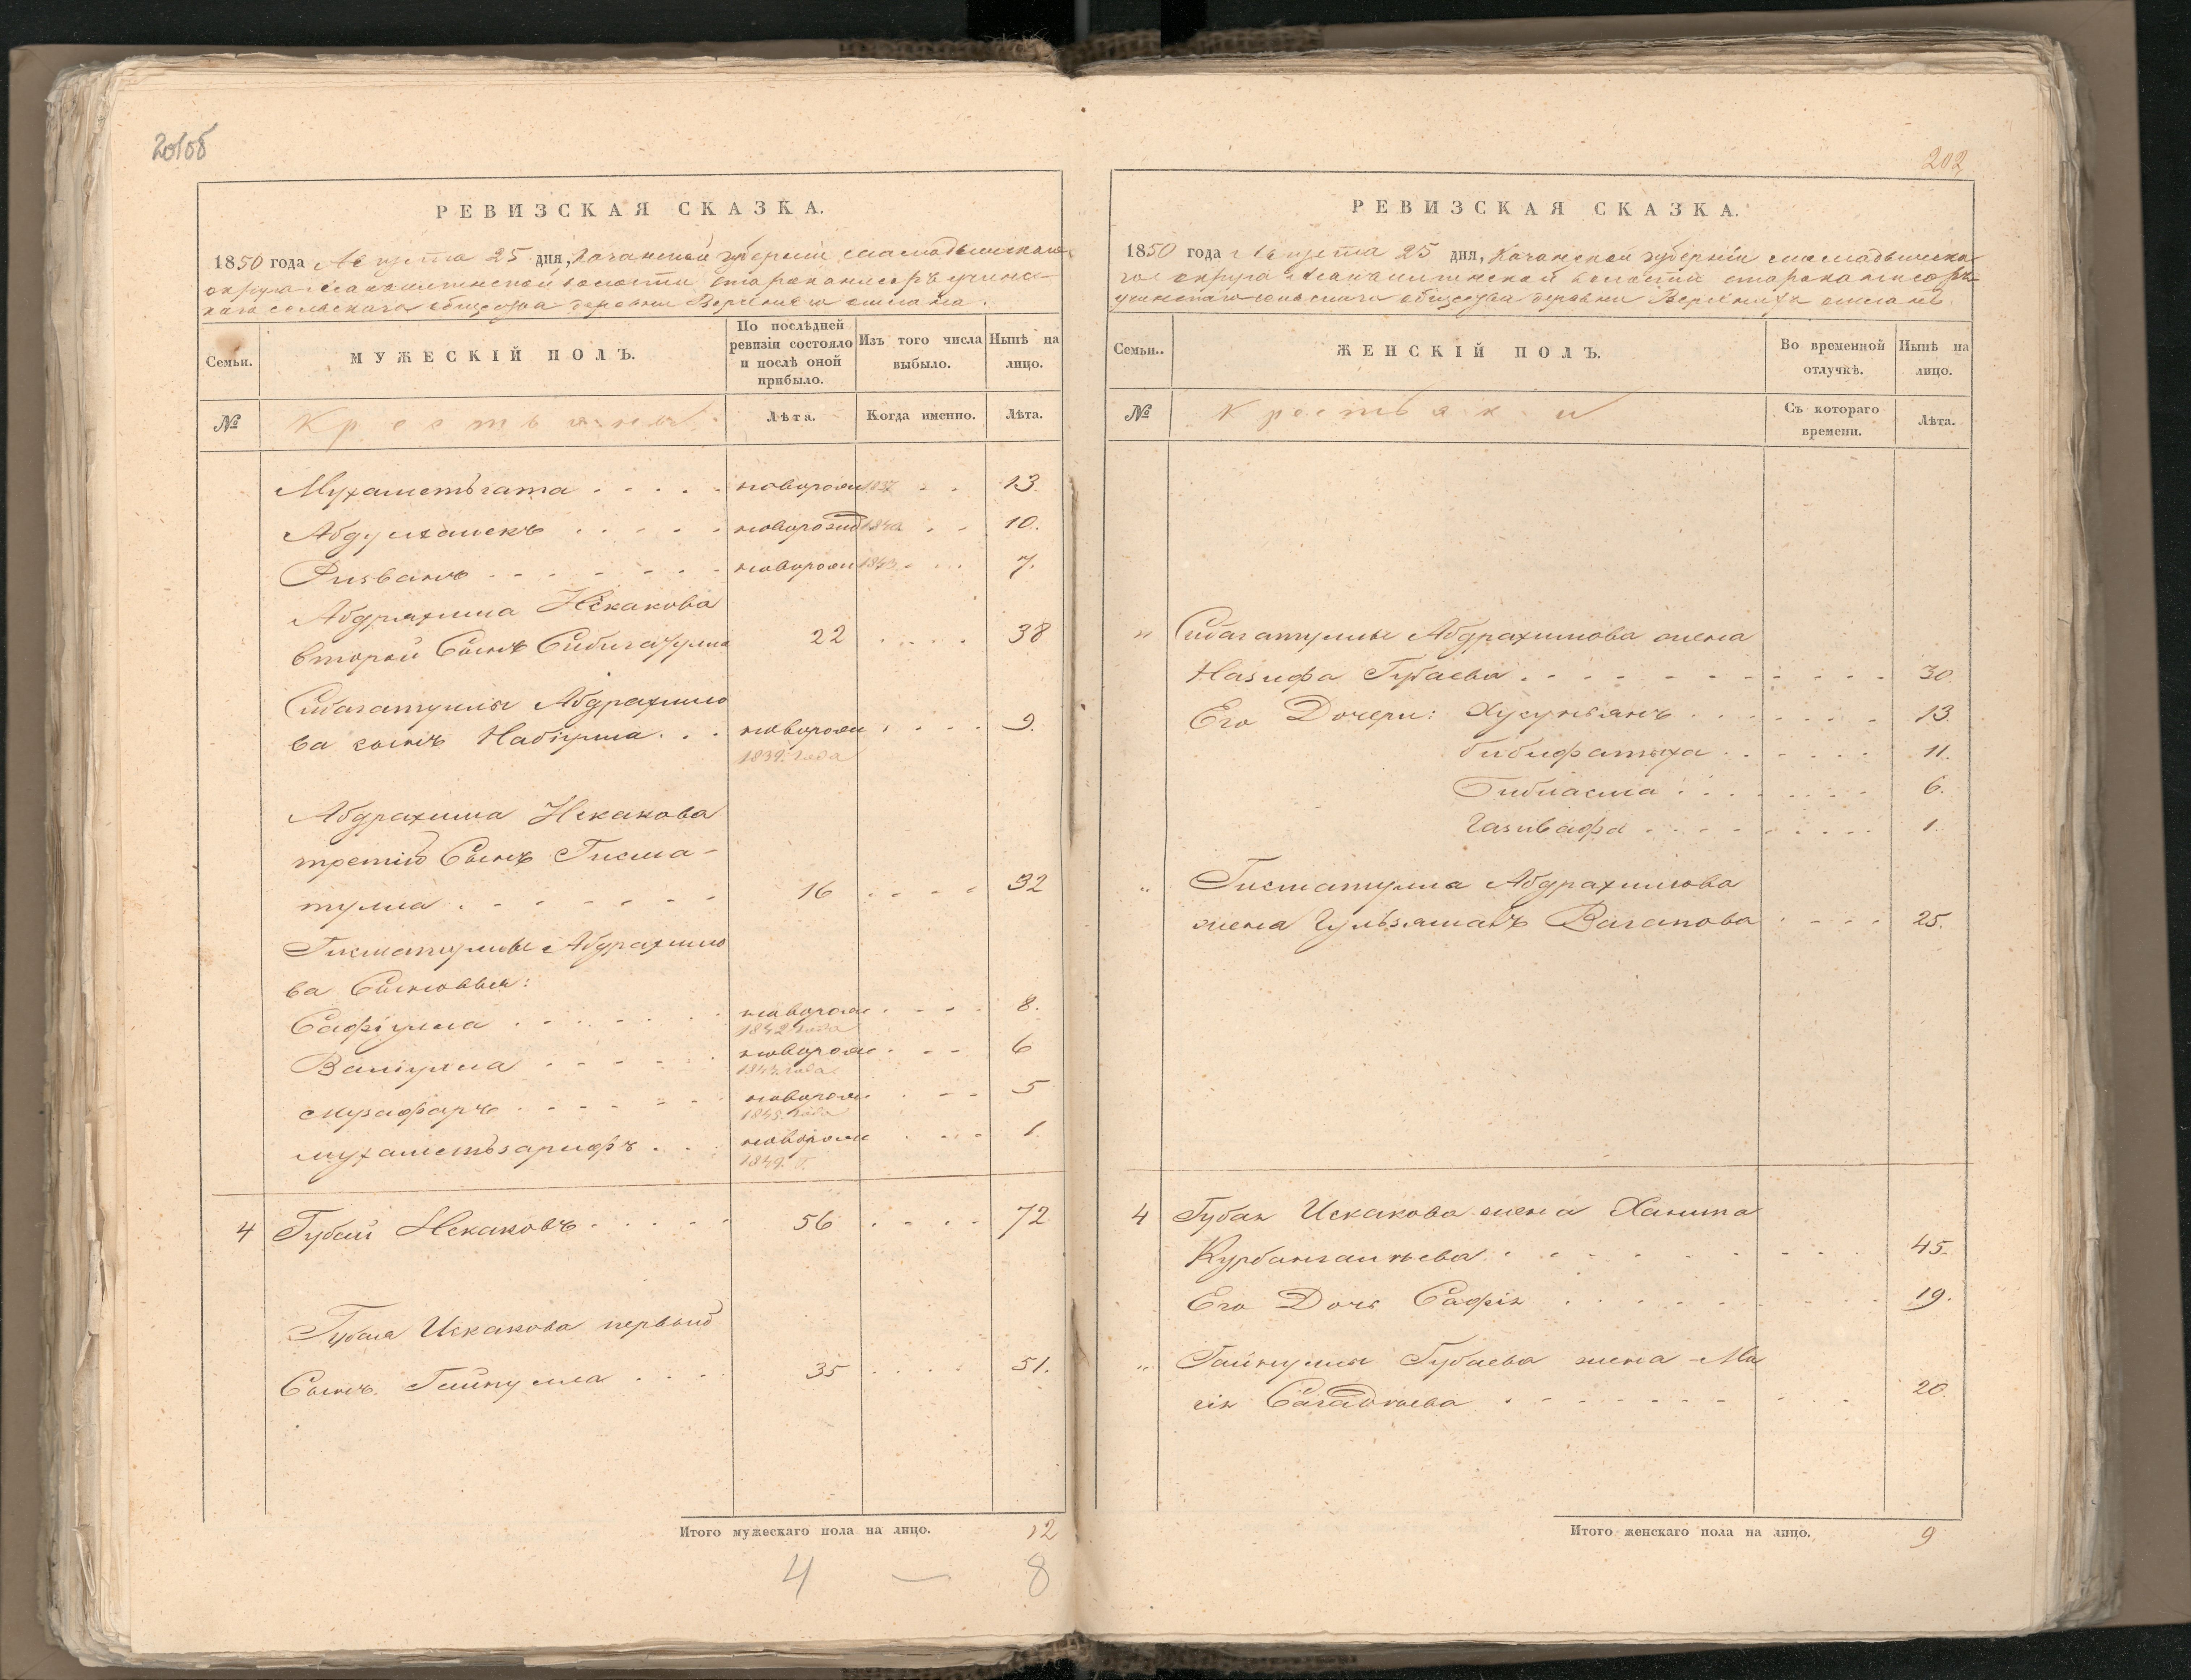 201об
РЕВИЗСКАЯ СКАЗКА.
1850 года Августа 25 дня, Казанской губерніи Мамадышскаго
округа волости
каго сельскаго общества деревни Верхнихъ
Семьи.
МУЖЕСКІЙ ПОЛЪ.
По послѣдней ревизіи состояло и послѣ оной прибыло.
Изъ того числа выбыло.
Нынѣ на лицо.
№
Крестьяны
Лѣта.
Когда именно.
Лѣта.
Мухаметьгата . . . . . новорож 1837 . . 13.
Абдулхаликъ . . . . . новорожд 1840 . . 10.
Ризванъ . . . . . . . новорож 1843 . . . 7.
Абдряхима Искакова
второй Сынъ Сибигатулла 22 . . . . 38
Сибагатуллы Абдрахимо
ва сынъ Набіулла . . . новорож . . . . 9.
1839. года
Абдрахима Искакова
третій Сынъ Гисма-
тулла . . . . . . . 16 . . . . 32
Гисматуллы Абдрахимо
ва Сыновья:
Сафіулла . . . . . . новорож . . . . 8.
1842 года
Валіулла . . . . . новорож . . . 6
года
Музафаръ . . . . . новорож . . . 5
года
Мухаметьзарифъ . . . новорож . . . . 1.
1849. г.
4 Губай Искаковъ . . . . . 56 . . . . 72
Губая Искакова первый
Сынъ Гайнулла . . . . 35 . . . . 51.
Итого мужескаго пола на лицо. 12
4 — 8
202
РЕВИЗСКАЯ СКАЗКА.
1850 года Августа 25 дня, Казанской губерніи Мамадышска
го округа волости
сельскаго общества деревни Верхнихъ
Семьи..
ЖЕНСКІЙ ПОЛЪ.
Во временной отлучкѣ.
Нынѣ на лицо.
№
Крестьянки
Съ котораго времени.
Лѣта.
" Сибагатуллы Абдрахимова жена
Назифа Губаева . . . . . . . . . 30.
Его Дочери: Хусузьянъ . . . . . . . 13.
Бибифатыха . . . . . . 11.
Бибиасма . . . . . . . 6.
Газивафа . . . . . . . . 1.
" Гисматулла Абдрахимова
жена Гульзяманъ Вагапова . . . . 25.
4 Губая Искакова жена Ханига
Курбангалѣева . . . . . . . . 45.
Его Дочь Сафія . . . . . . . . . 19.
" Гайнуллы Губаева жена Ма
гія Сагадѣева . . . . . . . . 20.
Итого женскаго пола на лицо. 9